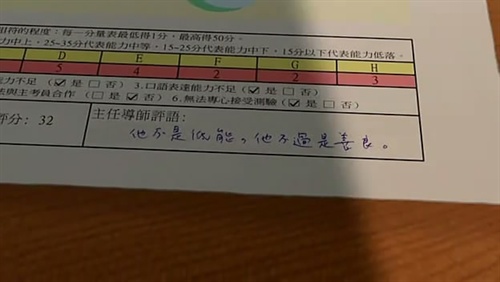 相符的程度:每一分量表最低得1分,最高得50分。
力中上,25-35分代表能力中等,15-25分代表能力中下,15分以下代表能力低落。
D E F G H
5 4 2 2 3
能力不足(☑是 □否)3.口語表達能力不足(☑是 □否)
法與主考員合作(□是 □否)6.無法專心接受測驗(☑是 □否)
評分:32
主任導師評語:
他不是低能,他不過是善良。